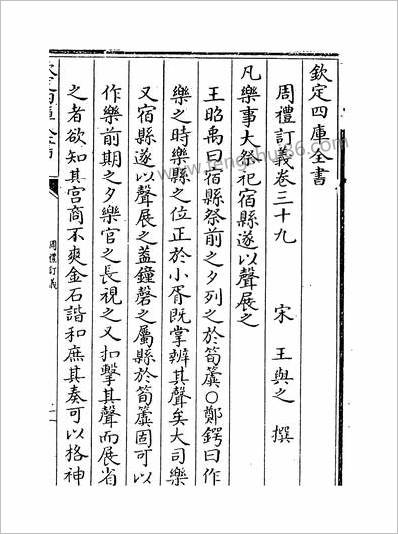 欽定四庫全書
周禮訂義卷三十九
宋 王與之 撰
凡樂事大祭祀宿縣遂以聲展之
王昭禹曰宿縣祭前之夕列之於筍簴○鄭鍔曰作
樂之時樂縣之位正於小胥既掌辨其聲矣大司樂
又宿縣遂以聲展之蓋鐘磬之屬縣於筍簴固可以
作樂前期之夕樂官之長視之又扣擊其聲而展省
之者欲知其宫商不爽金石諧和庶其奏可以格神
周禮訂義